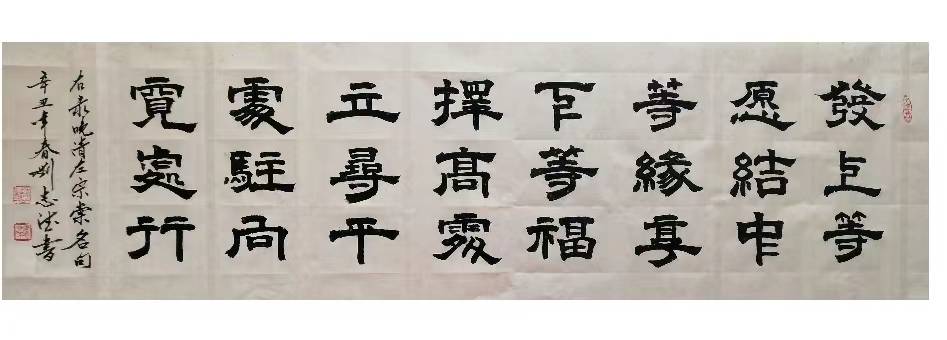 發上等
愿結中
等緣享
下等福
擇高處
立尋平
處駐向
寬處行
右录晚清左宗棠名句
辛丑年春刘志书